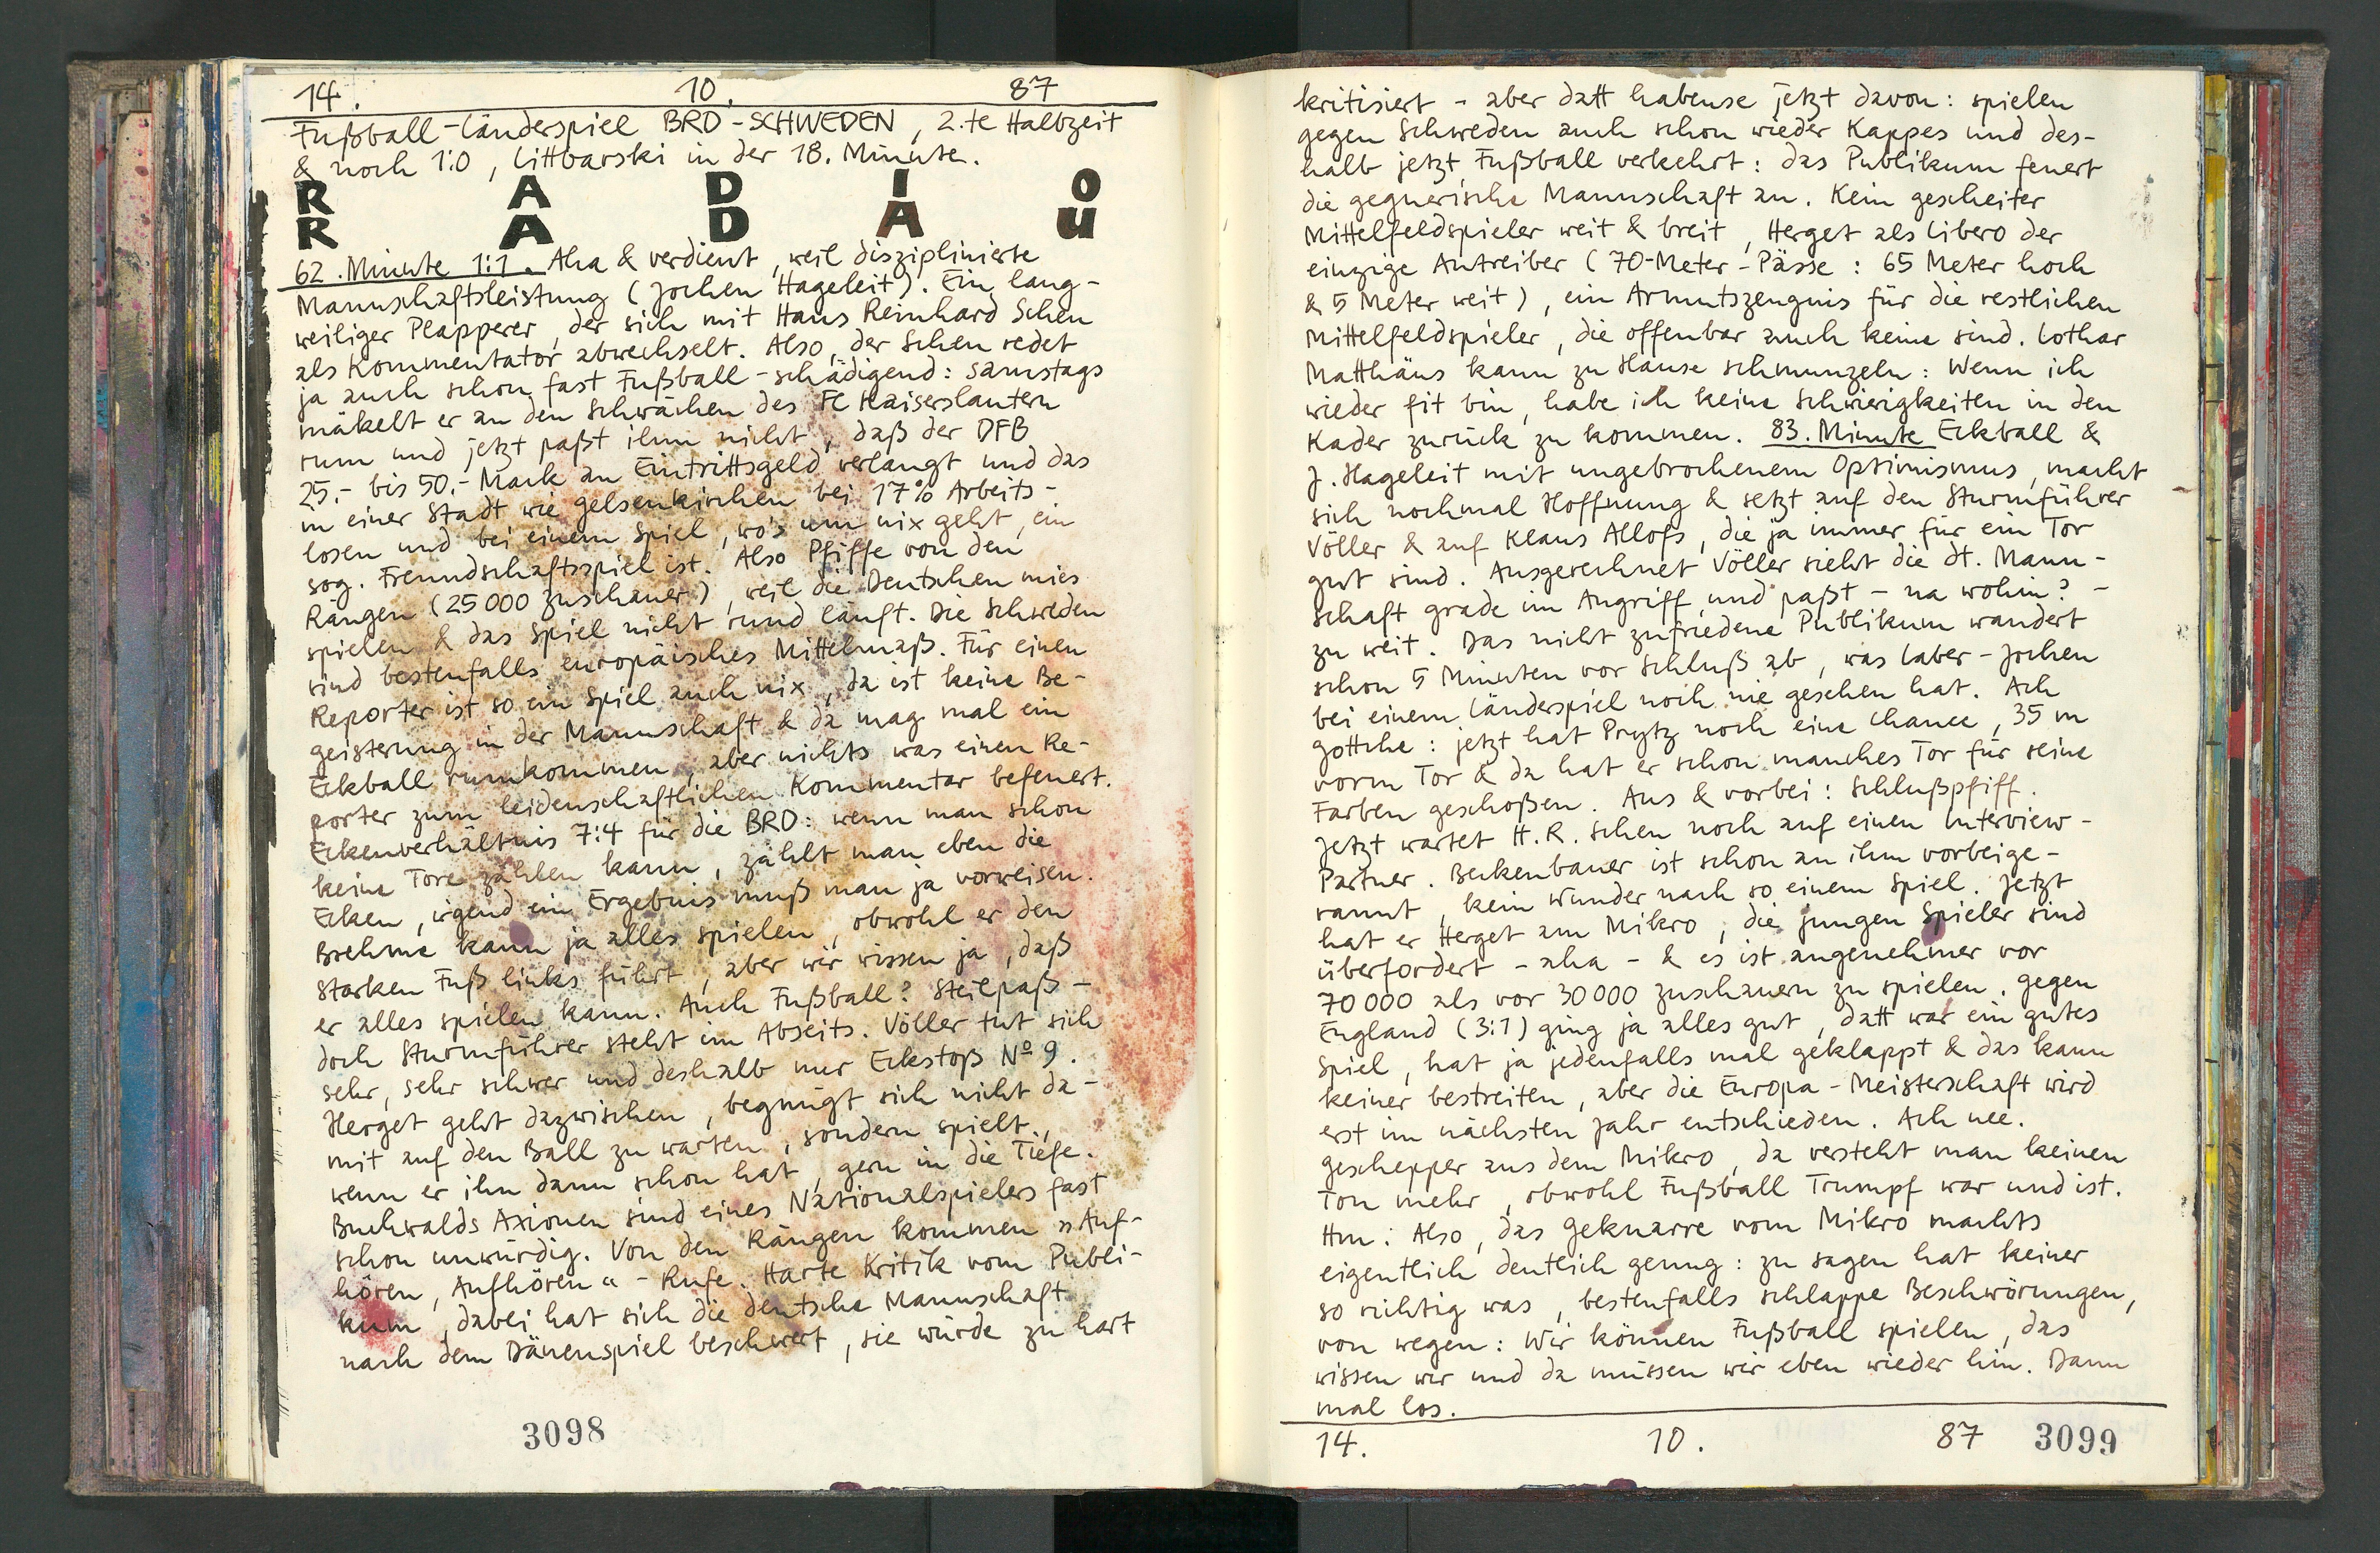 14. 10. 87
Fußball-Länderspiel BRD-SCHWEDEN, 2.te Halbzeit
& noch 1:0, Littbarski in der 18. Minute.
R A D I O
R A D A U
62. Minute 1:1. Aha & verdient, weil disziplinierte
Mannschaftsleistung (Jochen Hageleit). Ein lang-
weiliger Plapperer, der sich mit Hans Reinhard Scheu
als Kommentator abwechselt. Also, der Scheu redet
ja auch schon fast Fußball-schädigend: samstags
mäkelt er an den Schwächen des FC Kaiserslautern
rum und jetzt paßt ihm nicht, daß der DFB
25.- bis 50.- Mark an Eintrittsgeld verlangt und das
in einer Stadt wie Gelsenkirchen bei 17% Arbeits-
losen und bei einem Spiel, wo's um nix geht, ein
sog. Freundschaftsspiel ist. Also Pfiffe von den
Rängen (25000 Zuschauer), weil die Deutschen mies
spielen & das Spiel nicht rund läuft. Die Schweden
sind bestenfalls europäisches Mittelmaß. Für einen
Reporter ist so ein Spiel auch nix, da ist keine Be-
geisterung in der Mannschaft & da mag mal ein
Eckball rumkommen, aber nichts was einen Re-
porter zum leidenschaftlichen Kommentar befeuert.
Eckenverhältnis 7:4 für die BRD: wenn man schon
keine Tore zählen kann, zählt man eben die
Ecken, irgend ein Ergebnis muß man ja vorweisen.
Brehme kann ja alles spielen, obwohl er den
starken Fuß links führt, aber wir wissen ja, daß
er alles spielen kann. Auch Fußball? Steilpaß -
doch Sturmführer steht im Abseits. Völler tut sich
sehr, sehr schwer und deshalb nur Eckstoß Nº 9.
Herget geht dazwischen, begnügt sich nicht da-
mit auf den Ball zu warten, sondern spielt,
wenn er ihn dann schon hat, gern in die Tiefe.
Buchwalds Axionen sind eines Nationalspielers fast
schon unwürdig. Von den Rängen kommen »Auf-
hören, Aufhören« - Rufe. Harte Kritik vom Publi-
kum, dabei hat sich die deutsche Mannschaft
nach dem Dänenspiel beschwert, sie würde zu hart
3098
kritisiert - aber datt habense jetzt davon: spielen
gegen Schweden auch schon wieder Kappes und des-
halb jetzt Fußball verkehrt: das Publikum feuert
die gegnerische Mannschaft an. Kein gescheiter
Mittelfeldspieler weit & breit, Herget als Libero der
einzige Antreiber (70-Meter-Pässe: 65 Meter hoch
& 5 Meter weit), ein Armutszeugnis für die restlichen
Mittelfeldspieler, die offenbar auch keine sind. Lothar
Matthäus kann zu Hause schmunzeln: Wenn ich
wieder fit bin, habe ich keine Schwierigkeiten in den
Kader zurück zu kommen. 83. Minute Eckball &
J. Hageleit mit ungebrochenem Optimismus, macht
sich nochmal Hoffnung & setzt auf den Sturmführer
Völler & auf Klaus Allofs, die ja immer für ein Tor
gut sind. Ausgerechnet Völler sieht die dt. Mann-
schaft grade im Angriff und paßt - na wohin? -
zu weit. Das nicht zufriedene Publikum wandert
schon 5 Minuten vor Schluß ab, was Laber-Jochen
bei einem Länderspiel noch nie gesehen hat. Ach
gottche: jetzt hat Prytz noch eine Chance, 35 m
vorm Tor & da hat er schon manches Tor für seine
Farben geschoßen. Aus & vorbei: Schlußpfiff.
Jetzt wartet H.R. Scheu noch auf einen Interview-
Partner. Beckenbauer ist schon an ihm vorbeige-
rannt, kein Wunder nach so einem Spiel. Jetzt
hat er Herget am Mikro, die jungen Spieler sind
überfordert - aha - & es ist angenehmer vor
70000 als vor 30000 Zuschauern zu spielen. Gegen
England (3:1) ging ja alles gut, datt war ein gutes
Spiel, hat ja jedenfalls mal geklappt & das kann
keiner bestreiten, aber die Europa-Meisterschaft wird
erst im nächsten Jahr entschieden. Ach nee.
Geschepper aus dem Mikro, da versteht man keinen
Ton mehr, obwohl Fußball Trumpf war und ist.
Hm: Also, das Geknarre vom Mikro machts
eigentlich deutlich genug: zu sagen hat keiner
so richtig was, bestenfalls schlappe Beschwörungen,
von wegen: Wir können Fußball spielen, das
wissen wir und da müssen wir eben wieder hin. Dann
mal los.
14. 10. 87 3099